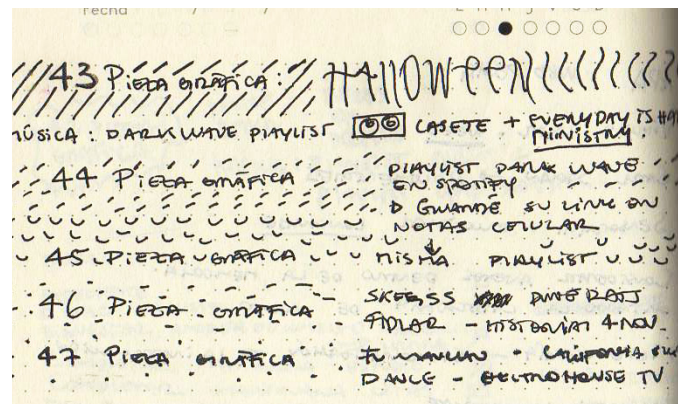 Fecha / /
L M M J V S D
43 PIEZA GRÁFICA: HALLOWEEN
MÚSICA: DARKWAVE PLAYLIST CASETE + EVERYDAY IS HA
MINISTRY
44 PIEZA GRÁFICA PLAYLIST DARK WAVE
EN SPOTIFY
GUARDE SU LINK EN
NOTAS CELULAR
45 PIEZA GRÁFICA MISMA PLAYLIST
46 PIEZA GRÁFICA SKEGSS DUNE RATS
FIDLAR - HISTORIAS 4 NOV.
47 PIEZA GRÁFICA FU MANCHU - CALIFORNIA
DANCE - ELECTROHOUSE TV